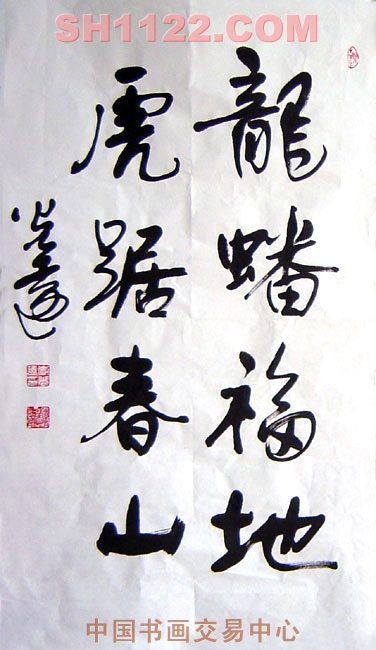 SH1122.COM
龍蟠福地
虎踞春山
中国书画交易中心